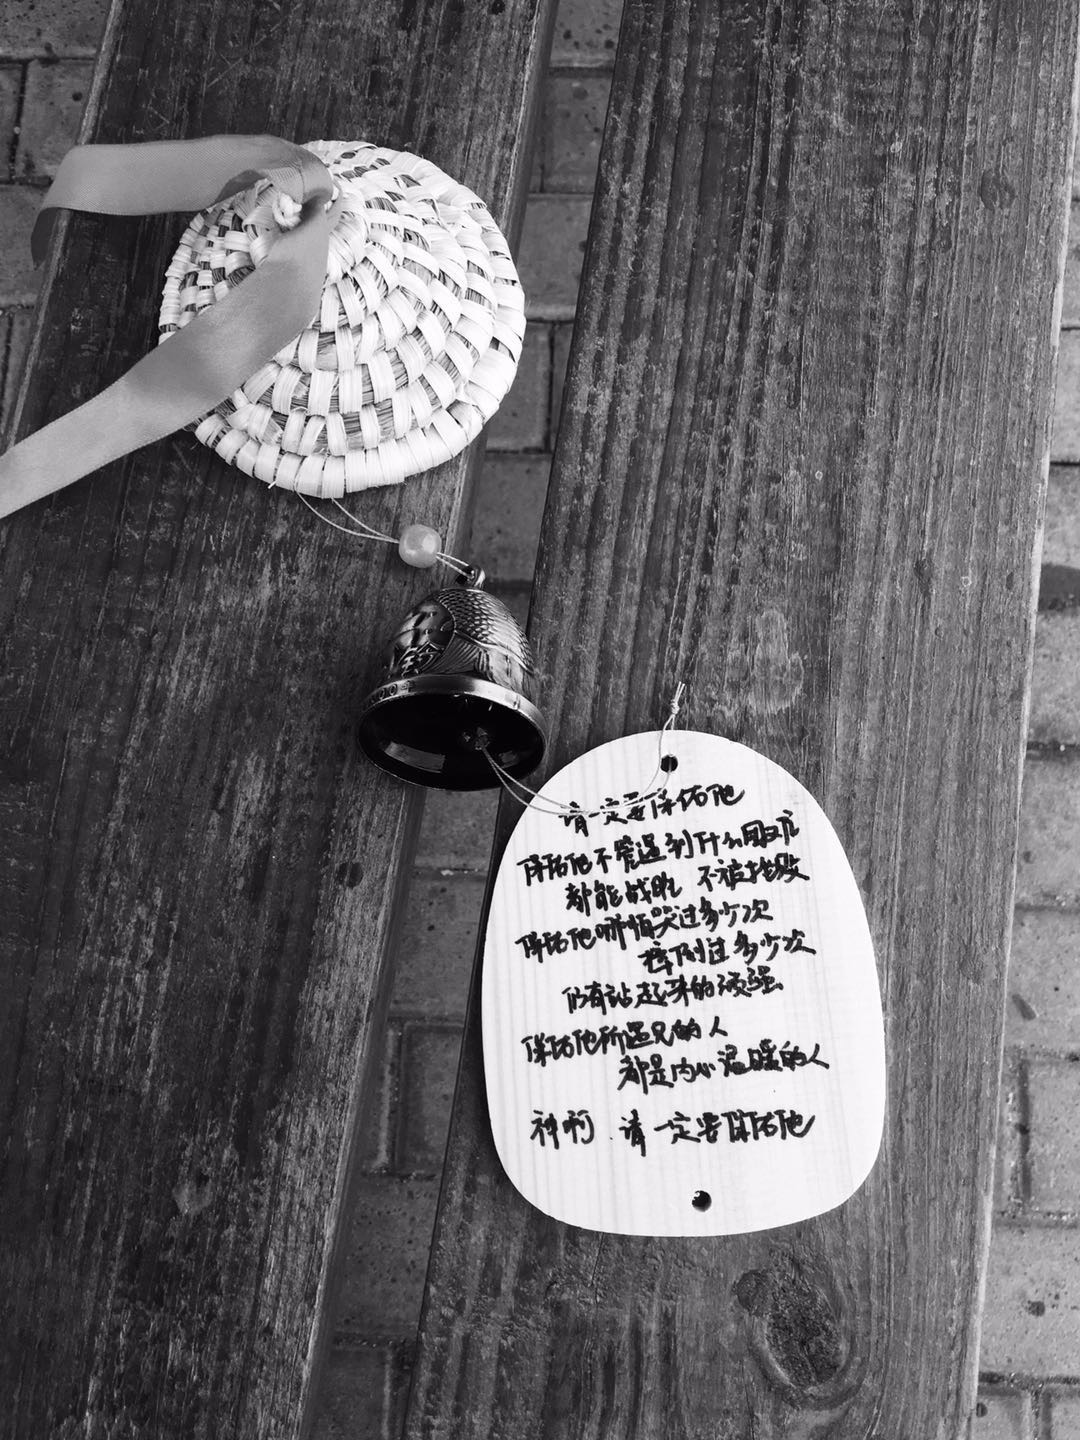 请一定要保佑他
保佑他不管遇到什么困难
都能战胜 不被挫败
保佑他哪怕哭过多少次
摔倒过多少次
仍有站起来的顽强
保佑他所遇见的人
都是内心温暖的人
神啊 请一定要保佑他